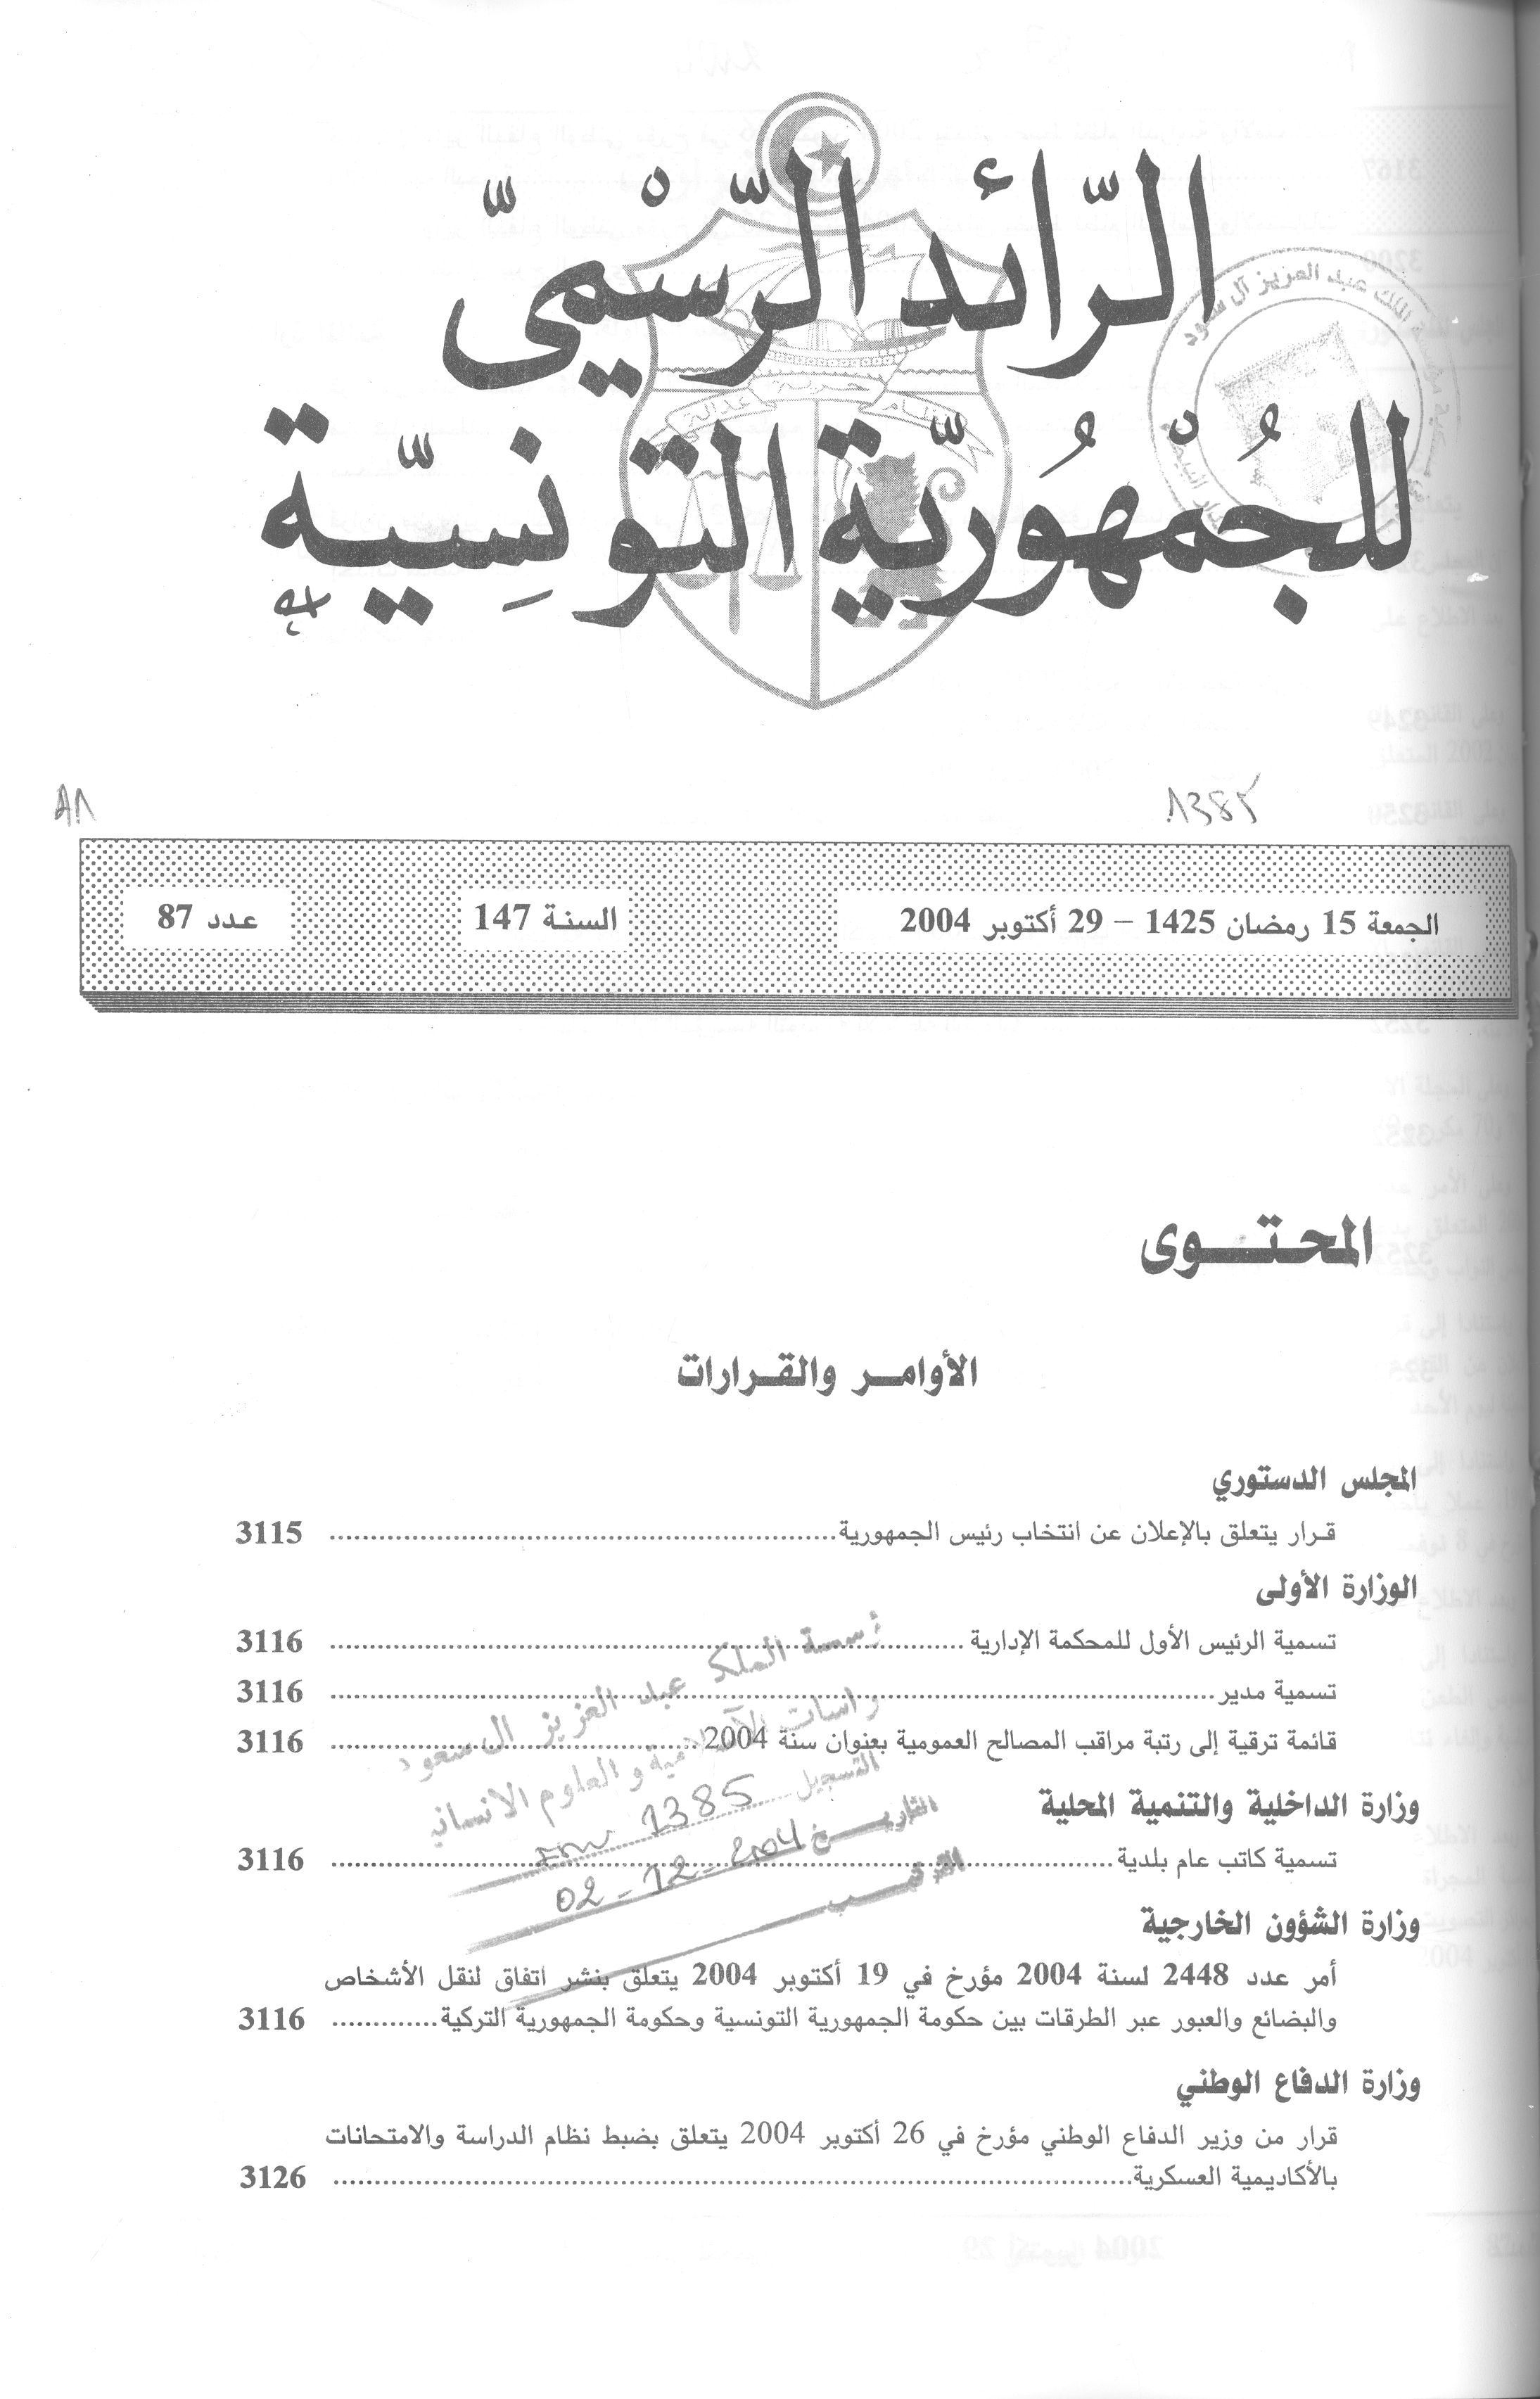 الرّائد الرّسْميّ
للجُمْهُوريّة التّونِسِيّة
نظام حرية عدالة
الملك عبد العزيز آل سعود
1385
الجمعة 15 رمضان 1425 – 29 أكتوبر 2004
السنة 147
عدد 87
المحتوى
الأوامر والقرارات
المجلس الدستوري
قرار يتعلق بالإعلان عن انتخاب رئيس الجمهورية 3115
الوزارة الأولى
تسمية الرئيس الأول للمحكمة الإدارية 3116
تسمية مدير 3116
قائمة ترقية إلى رتبة مراقب المصالح العمومية بعنوان سنة 2004 3116
وزارة الداخلية والتنمية المحلية
تسمية كاتب عام بلدية 3116
وزارة الشؤون الخارجية
أمر عدد 2448 لسنة 2004 مؤرخ في 19 أكتوبر 2004 يتعلق بنشر اتفاق لنقل الأشخاص
والبضائع والعبور عبر الطرقات بين حكومة الجمهورية التونسية وحكومة الجمهورية التركية 3116
وزارة الدفاع الوطني
قرار من وزير الدفاع الوطني مؤرخ في 26 أكتوبر 2004 يتعلق بضبط نظام الدراسة والامتحانات
بالأكاديمية العسكرية 3126
سسة الملك عبد العزيز ال سعود
راسات الاسلامية والعلوم الانسانية
التسجيل 1385
التاريخ 02-12-2004